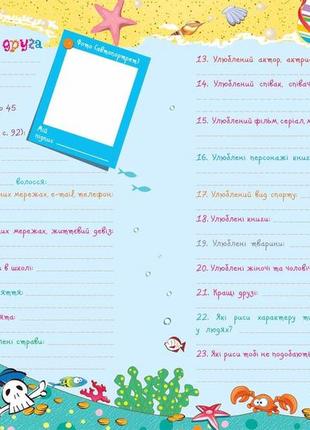 друга
Фото (автопортрет)
Мій
підпис
о 45
с. 92):
волосся:
них мережах, e-mail, телефон:
них мережах, життєвий девіз:
и в школі:
яття:
ята:
лені страви:
13. Улюблений актор, актрис
14. Улюблений співак, співач
15. Улюблений фільм, серіал, м
16. Улюблені персонажі книг
17. Улюблений вид спорту:
18. Улюблені книги:
19. Улюблені тварини:
20. Улюблені жіночі та чолові
21. Кращі друзі:
22. Які риси характеру т
у людях?
23. Які риси тобі не подобают